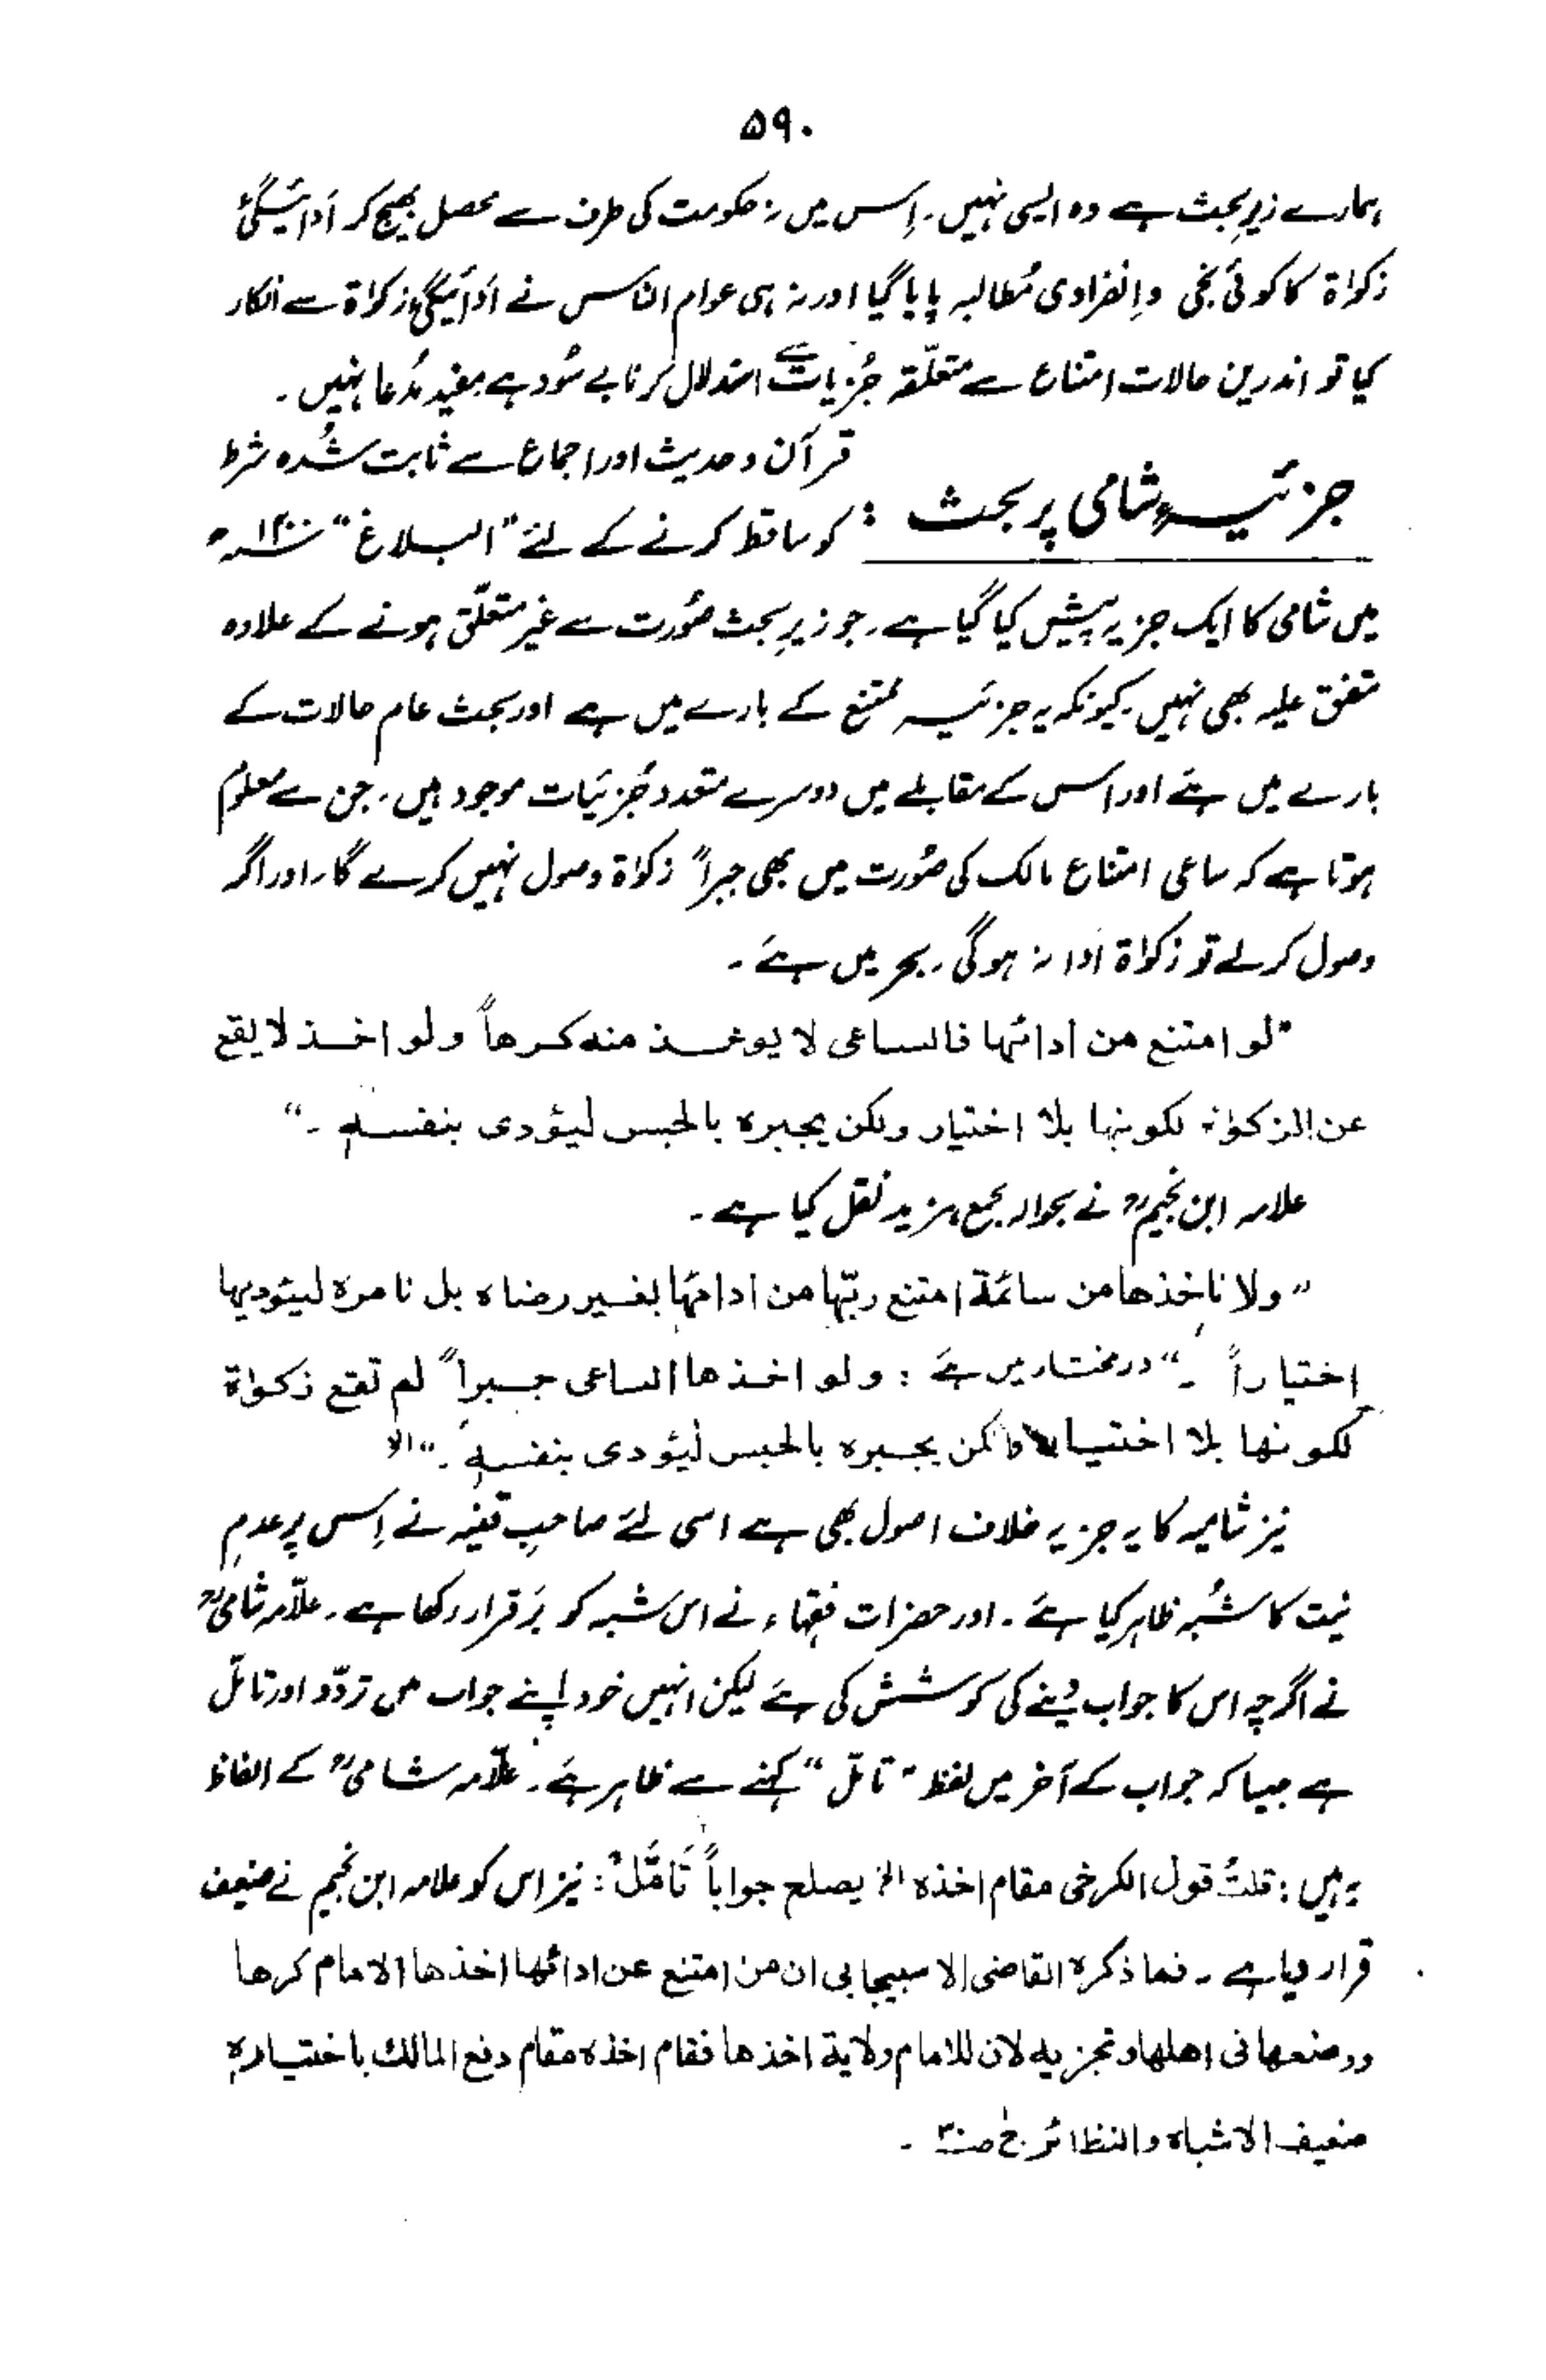 ۵۹۰
ہمارے زیرِ بحث ہے وہ ایسی نہیں۔ اِس میں نہ حکومت کی طرف سے محصل بھیج کر اَدائیگیٔ
زکوٰۃ کا کوئی نجی و اِنفرادی مُطالبہ پایا گیا اور نہ ہی عوام الناس نے اَدائیگیٔ زکوٰۃ سے انکار
کیا تو اندرین حالات امتناع سے متعلّقہ جُزیات سے استدلال کرنا بے سُود ہے مفید مُدعا نہیں۔
قرآن و حدیث اور اجماع سے ثابت شُدہ شرط
جزئیہ شامی پر بحث :
کو ساقط کرنے کے لئے "البلاغ"
میں شامی کا ایک جزیہ پیش کیا گیا ہے۔ جو زیرِ بحث صُورت سے غیر متعلّق ہونے کے علاوہ
متفق علیہ بھی نہیں۔ کیونکہ یہ جزئیہ ممتنع کے بارے میں ہے اور بحث عام حالات کے
بارے میں ہے اور اس کے مقابلے میں دوسرے متعدد جُزئیات موجود ہیں۔ جن سے معلوم
ہوتا ہے کہ ساعی امتناع مالک کی صُورت میں بھی جبراً زکوٰۃ وصول نہیں کرے گا۔ اور اگر
وصول کرلے تو زکوٰۃ اَدا نہ ہوگی۔ بحر میں ہے۔
"لو امتنع من ادائہا فالساعی لا یوخذ منہ کرھاً ولو اخذ لا یقع
عن الزکوٰۃ لکونہا بلا اختیار ولکن یجبرہ بالحبس لیؤدی بنفسہٖ۔"
علامہ ابن نجیمؒ نے بحوالہ مجمع مزید نقل کیا ہے۔
"ولا ناخذھا من سائمۃ امتنع ربّہا من ادائہا بغیر رضاہ بل نامرہ لیئودیہا
اختیاراً۔" درمختار میں ہے : ولو اخذھا الساعی جبراً لم تقع زکوٰۃ
لکونہا بلا اختیار ولکن یجبرہ بالحبس لیؤدی بنفسہٖ۔" الا
نیز شامیہ کا یہ جزیہ خلاف اصول بھی ہے اسی لئے صاحبِ قنیہ نے اِس پر عدمِ
نیت کا شُبہ ظاہر کیا ہے۔ اور حضرات فقہاء نے اس شبہ کو بَرقرار رکھا ہے۔ علاّمہ شامیؒ
نے اگرچہ اس کا جواب دینے کی کوشش کی ہے لیکن انہیں خود اپنے جواب میں تردّد اور تامّل
ہے جیسا کہ جواب کے آخر میں لفظ "تامّل" کہنے سے ظاہر ہے۔ علاّمہ شامیؒ کے الفاظ
یہ ہیں : قلتُ قول الکرخی مقام اخذہ الخ یصلح جواباً تَامَّلْ : نیز اس کو علامہ ابن نجیم نے ضعیف
قرار دیا ہے۔ فما ذکرہ القاضی الاسبیجابی ان من امتنع عن ادائھا اخذھا الامام کرھا
ووضعھا فی اھلھا وتجزیہ لان للامام ولایۃ اخذھا فقام اخذہ مقام دفع المالک باختیارہٖ
ضعیف الاشباہ والنظائر